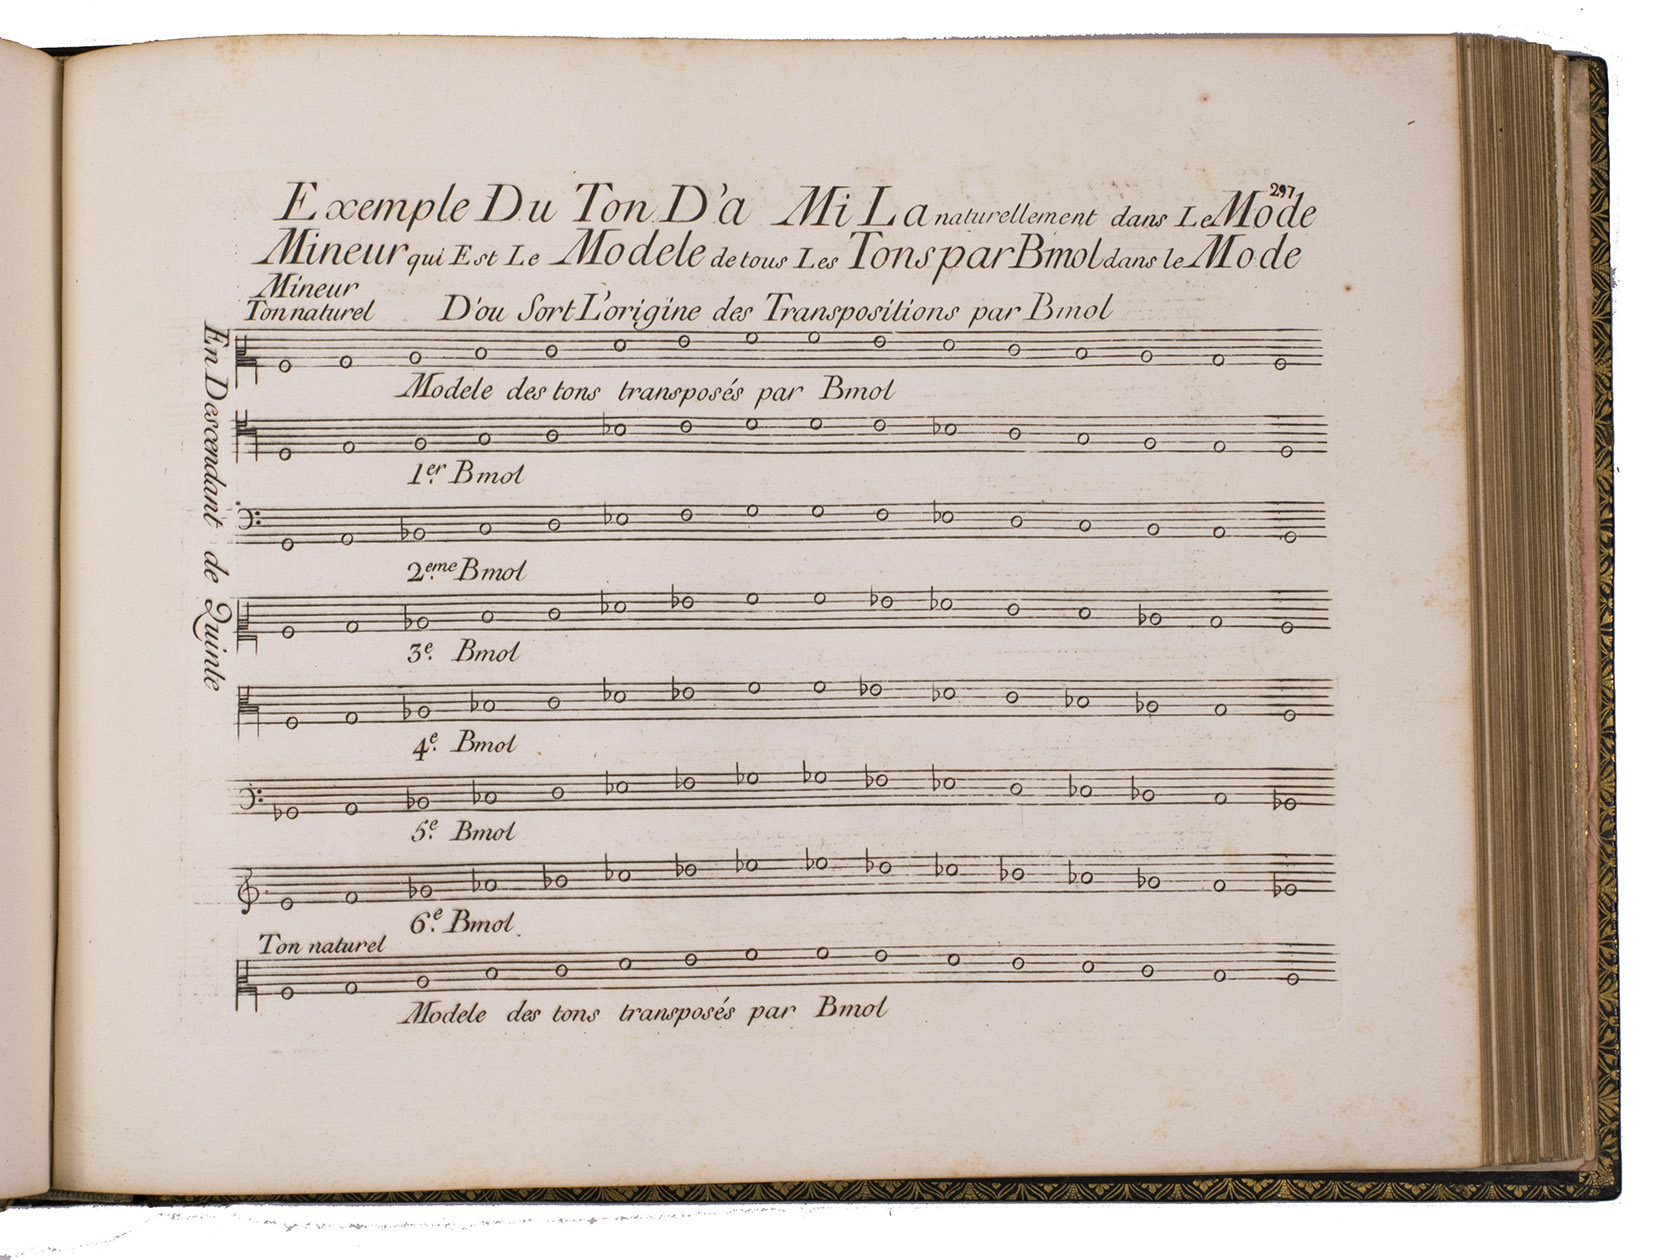 297
Exemple Du Ton D'a Mi La naturellement dans Le Mode
Mineur qui Est Le Modele de tous Les Tons par Bmol dans le Mode
Mineur
Ton naturel D'ou Sort L'origine des Transpositions par Bmol
En Descendant de Quinte
Modele des tons transposés par Bmol
1er. Bmol
2eme. Bmol
3e. Bmol
4e. Bmol
5e. Bmol
6e. Bmol.
Ton naturel
Modele des tons transposés par Bmol